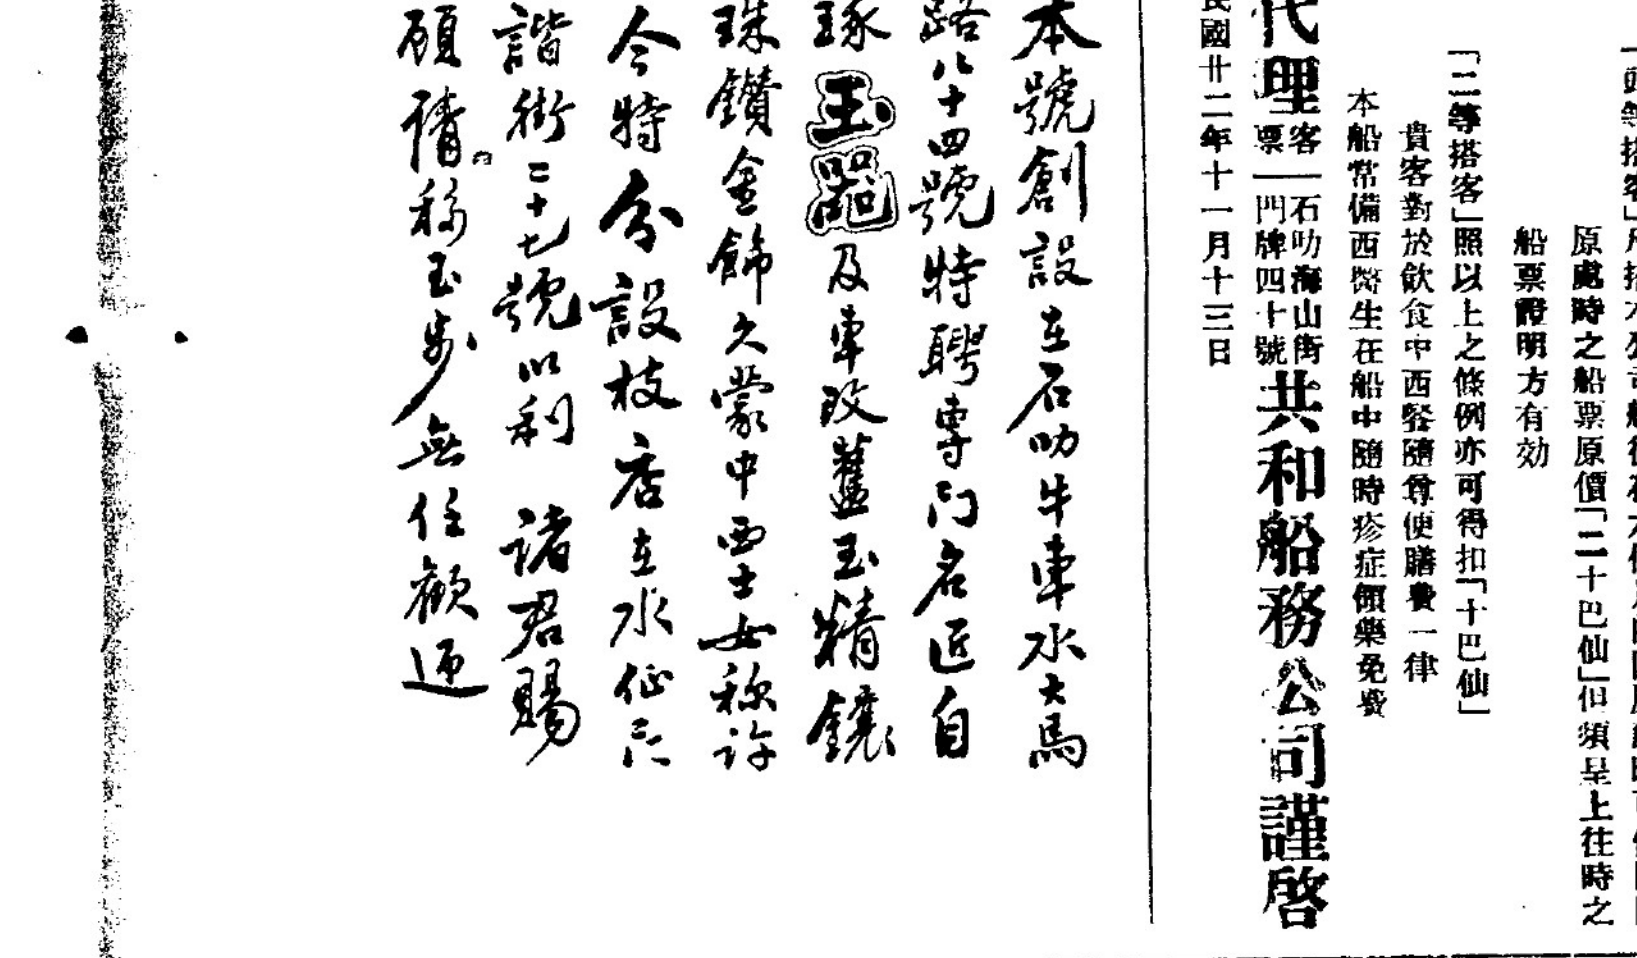 原處時之船票原價「二十巴仙」但須呈上往時之
船票證明方有効
「二等搭客」照以上之條例亦可得扣「十巴仙」
貴客對於飲食中西餐隨尊便膳費一律
本船常備西醫生在船中隨時疹症領藥免費
代理
客票
石叻海山街
門牌四十號
共和船務公司謹啓
民國廿二年十一月十三日
本號創設在石叻牛車水大馬
路八十四號特聘專門名匠自
琢玉器及車改舊玉精鑲
珠鑽金飾久蒙中西士女称許
今特分設枝店在水仙
諧街二十七號以利 諸君賜
顧請移玉步無任歡迎